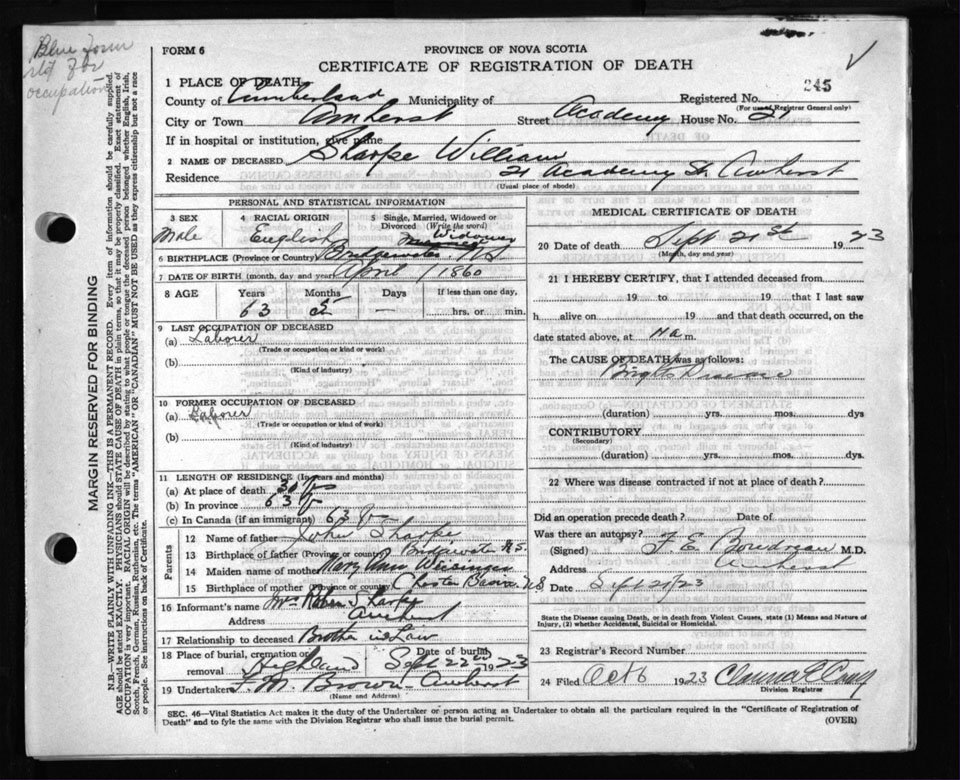 Blue Form
for
occupation
FORM 6
PROVINCE OF NOVA SCOTIA
CERTIFICATE OF REGISTRATION OF DEATH
245
1 PLACE OF DEATH:
County of Cumberland Municipality of Registered No.
(For use of Registrar General only)
City or Town Amherst Street Academy House No. 21
If in hospital or institution, give name
2 NAME OF DECEASED Sharpe William
Residence 21 Academy St. Amherst
(Usual place of abode)
PERSONAL AND STATISTICAL INFORMATION
3 SEX Male
4 RACIAL ORIGIN English
5 Single, Married, Widowed or Divorced (Write the word) Widower
6 BIRTHPLACE (Province or Country) Bridgewater N.S
7 DATE OF BIRTH (month, day and year) April 1 1860
8 AGE Years Months Days If less than one day,
63 5 — hrs. or min.
9 LAST OCCUPATION OF DECEASED
(a) Laborer
(Trade or occupation or kind of work)
(b)
(Kind of industry)
10 FORMER OCCUPATION OF DECEASED
(a) Laborer
(Trade or occupation or kind of work)
(b)
(Kind of industry)
11 LENGTH OF RESIDENCE (In years and months)
(a) At place of death 30 y
(b) In province 63 y
(c) In Canada (if an immigrant) 63 y
Parents
12 Name of father John Sharpe
13 Birthplace of father (Province or country) Bridgewater N.S.
14 Maiden name of mother Mary Ann
15 Birthplace of mother (Province or country) Chester Basin N.S
16 Informant's name Mrs Sharpe
Address Amherst
17 Relationship to deceased Brother in Law
18 Place of burial, cremation or removal Highland Date of burial Sept 22nd 1923
19 Undertaker F. M. Brown Amherst
(Name and Address)
MEDICAL CERTIFICATE OF DEATH
20 Date of death Sept 21st 1923
(Month, day and year)
21 I HEREBY CERTIFY, that I attended deceased from
19 to 19 that I last saw
h alive on 19 and that death occurred, on
date stated above, at m.
The CAUSE OF DEATH was as follows:
Brights Disease
(duration) yrs. mos. dys
CONTRIBUTORY
(Secondary)
(duration) yrs. mos. dys
22 Where was disease contracted if not at place of death?
Did an operation precede death? Date of
Was there an autopsy?
(Signed) F. E. Boudreau M.D.
Address Amherst
Date Sept 21/23
State the Disease causing Death, or in death from Violent Causes, state (1) Means and Nature of Injury, (2) whether Accidental, Suicidal or Homicidal.
23 Registrar's Record Number
24 Filed Oct 6 1923
Division Registrar
SEC. 46—Vital Statistics Act makes it the duty of the Undertaker or person acting as Undertaker to obtain all the particulars required in the "Certificate of Registration of
Death" and to fyle the same with the Division Registrar who shall issue the burial permit.
(OVER)
MARGIN RESERVED FOR BINDING
N.B.—WRITE PLAINLY WITH UNFADING INK—THIS IS A PERMANENT RECORD. Every item of information should be carefully supplied.
AGE should be stated EXACTLY. PHYSICIANS should STATE CAUSE OF DEATH in plain terms, so that it may be properly classified. Exact statement of
OCCUPATION is very important. RACIAL ORIGIN will be described by stating to what people or tongue the deceased person belonged whether English, Irish,
Scotch, French, German, Russian, Ruthenian, etc. The terms "AMERICAN" OR "CANADIAN" MUST NOT BE USED as they express citizenship but not a race
or people. See instructions on back of Certificate.